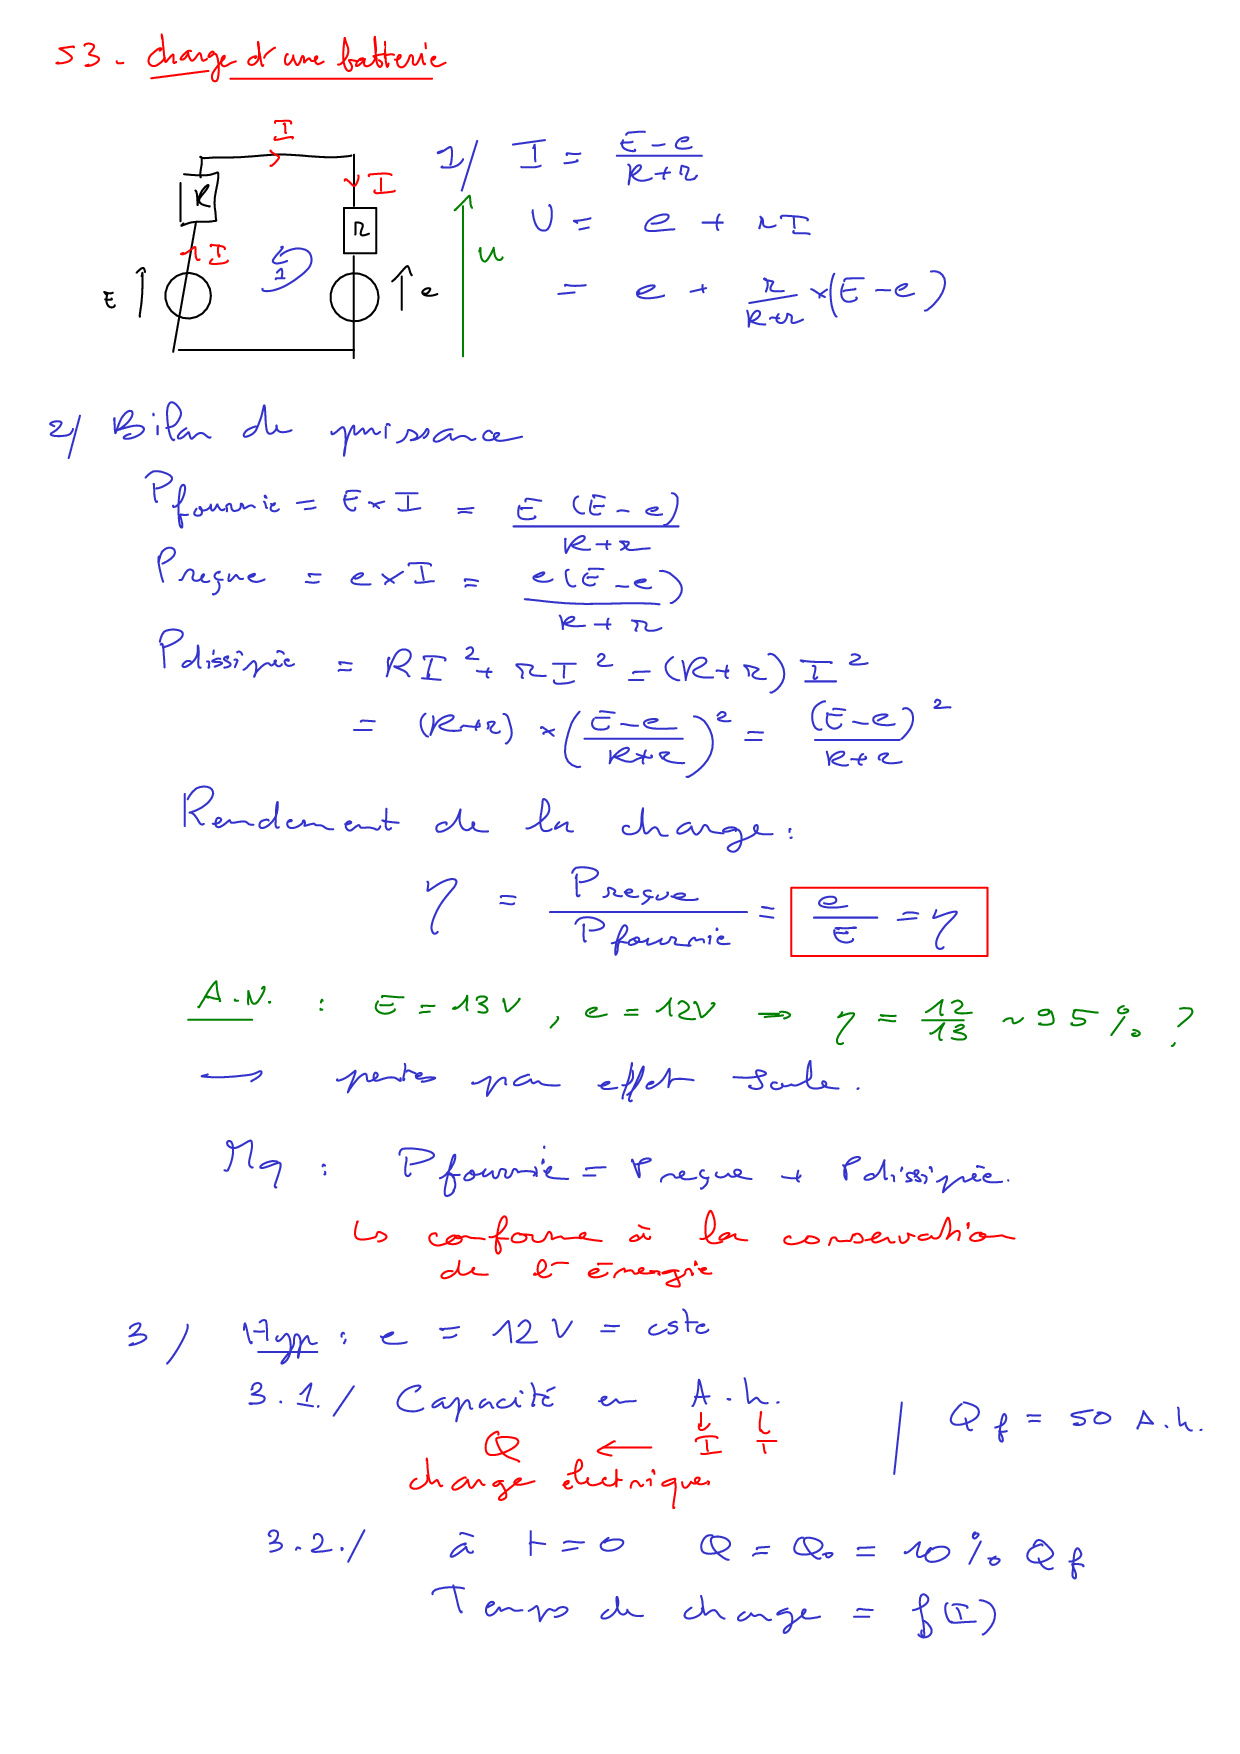 53 - Charge d'une batterie
I
R
I
I
r
1
E
e
u
1/ I = (E - e)/(R + r)
U = e + rI
= e + r/(R+r) × (E - e)
2/ Bilan de puissance
Pfournie = E × I = E (E - e)/(R + r)
Preçue = e × I = e (E - e)/(R + r)
Pdissipée = RI² + rI² = (R + r) I²
= (R + r) × ((E - e)/(R + r))² = (E - e)²/(R + r)
Rendement de la charge :
η = Preçue/Pfournie = e/E = η
A.N. : E = 13 V , e = 12V ⇒ η = 12/13 ~ 95 % ?
→ pertes par effet Joule.
Mq : Pfournie = Preçue + Pdissipée.
↳ conforme à la conservation
de l'énergie
3 / Hyp : e = 12 V = cste
3.1./ Capacité en A.h.
Q ← I T
charge électriques
Qf = 50 A.h.
3.2./ à t = 0 Q = Q0 = 10 % Qf
Temps de charge = f(I)